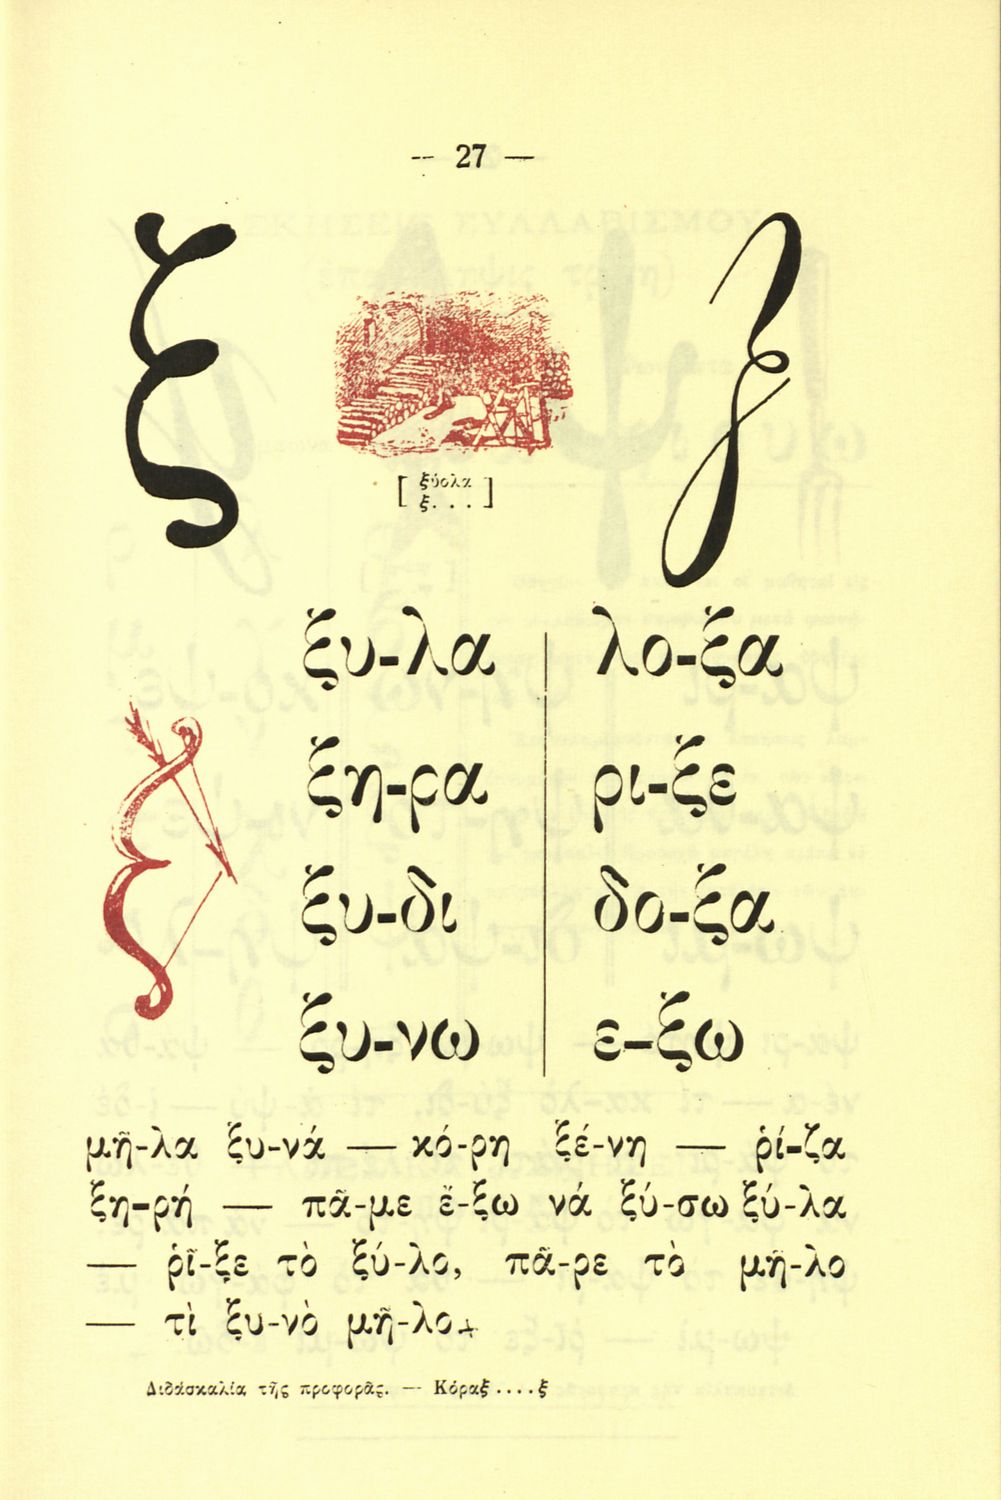 -- 27 —
ξ ξ
[ ξύολα
ξ. . . ]
ξυ-λα λο-ξα
ξη-ρα ρι-ξε
ξυ-δι δο-ξα
ξυ-νω ε-ξω
μῆ-λα ξυ-νά — κό-ρη ξέ-νη — ῥί-ζα
ξη-ρή — πᾶ-με ἔ-ξω νά ξύ-σω ξύ-λα
— ῥῖ-ξε τὸ ξύ-λο, πᾶ-ρε τὸ μῆ-λο
— τὶ ξυ-νὸ μῆ-λο
Διδάσκαλία τῆς προφορᾶς. — Κόραξ....ξ